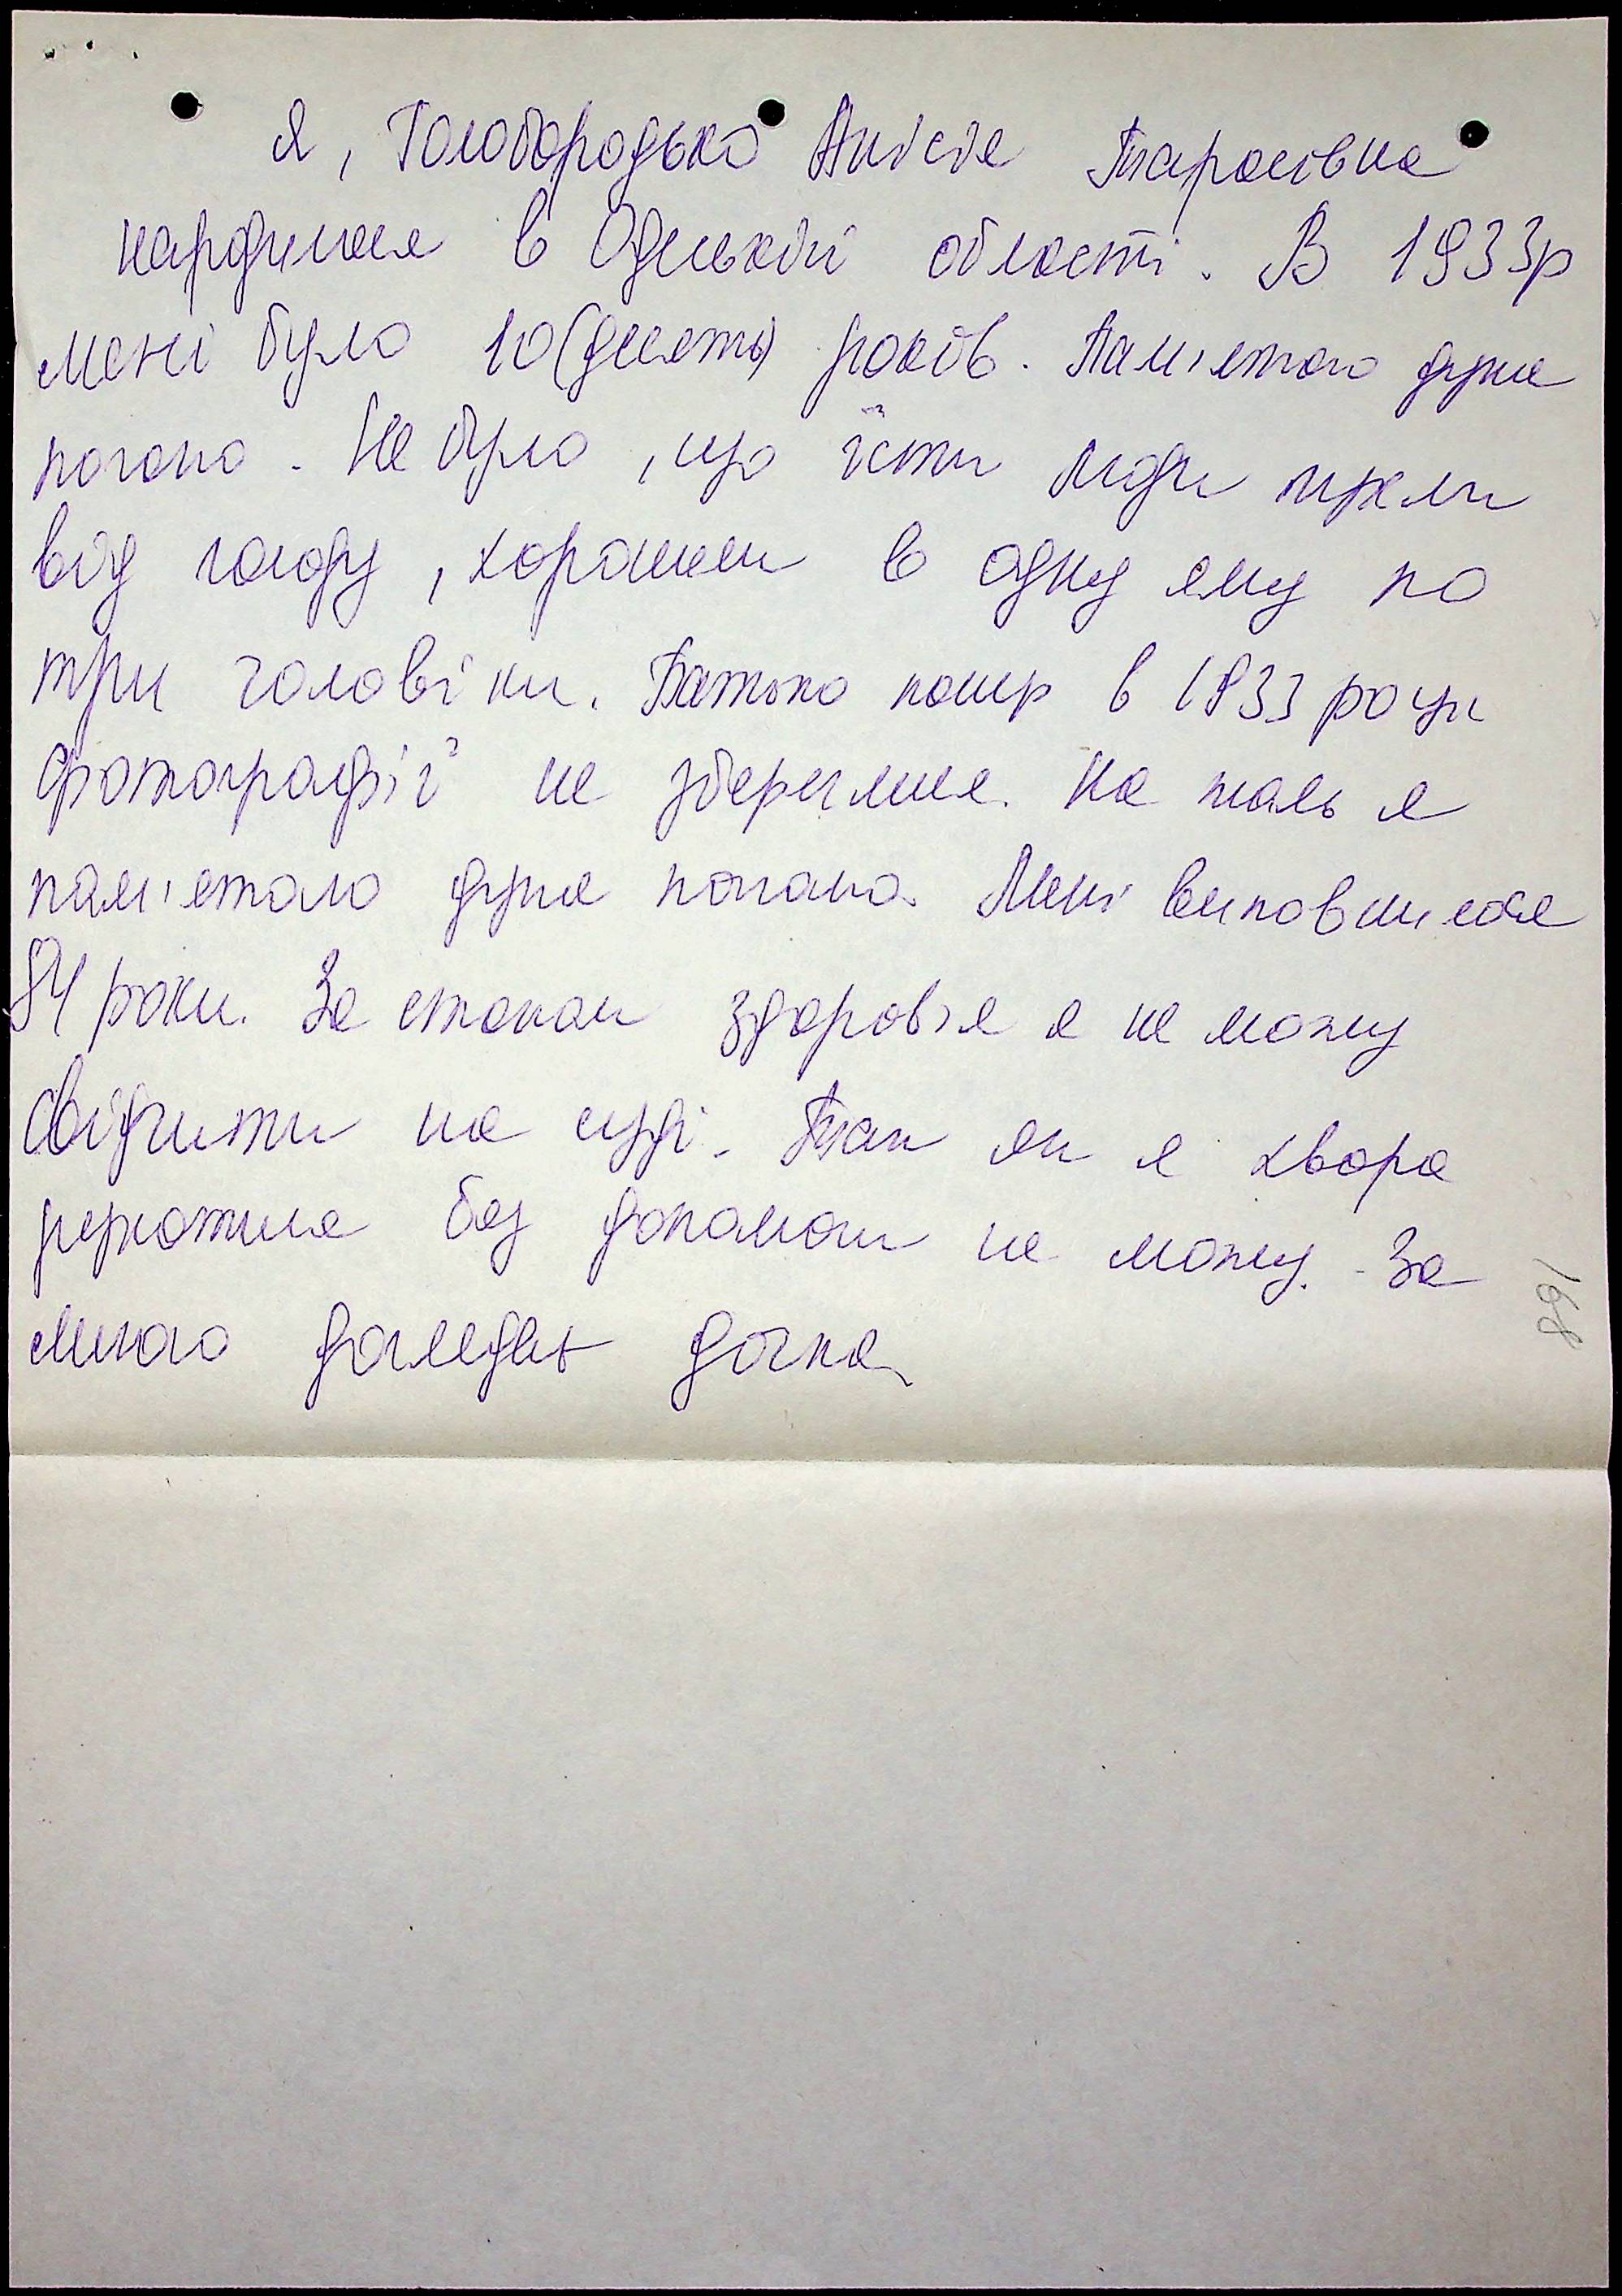 Я, Голобородько Анісія Тарасівна
народилася в Одеській області. В 1933р
мені було 10(десять) років. Пам'ятаю дуже
погано. Не було, що їсти люди мрели
від голоду, хоронили в одну яму по
три чоловіки. Батько помер в 1933 році
фотографії не збереглися. На жаль я
пам'ятаю дуже погано. Мені виповнилося
84 роки. За станом здоров'я я не можу
свідчити на суді. Так як я хвора
рухатися без допомоги не можу. За
мною доглядає дочка
168